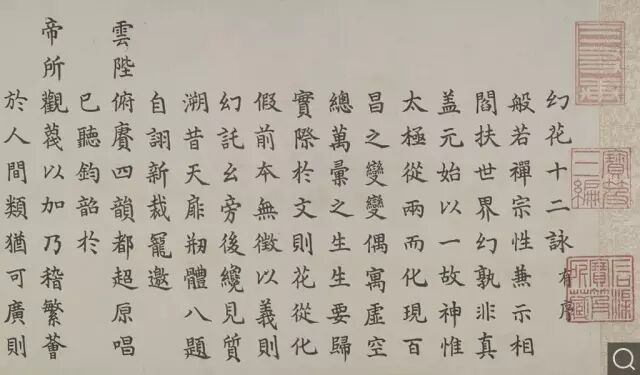 幻花十二詠 有序
般若禪宗性兼示相
閻扶世界幻孰非真
盖元始以一故神惟
太極從兩而化現百
昌之變變偶寓虛空
總萬彙之生生要歸
實際於文則花從化
假前本無徵以義則
幻託幺旁後纔見質
溯昔天扉刱體八題
自詡新裁寵邀
雲陛俯賡四韻都超原唱
已聽鈞韶於
帝所觀蔑以加乃稽繁薈
於人間類猶可廣則
寶笈三編
石渠寶笈所藏